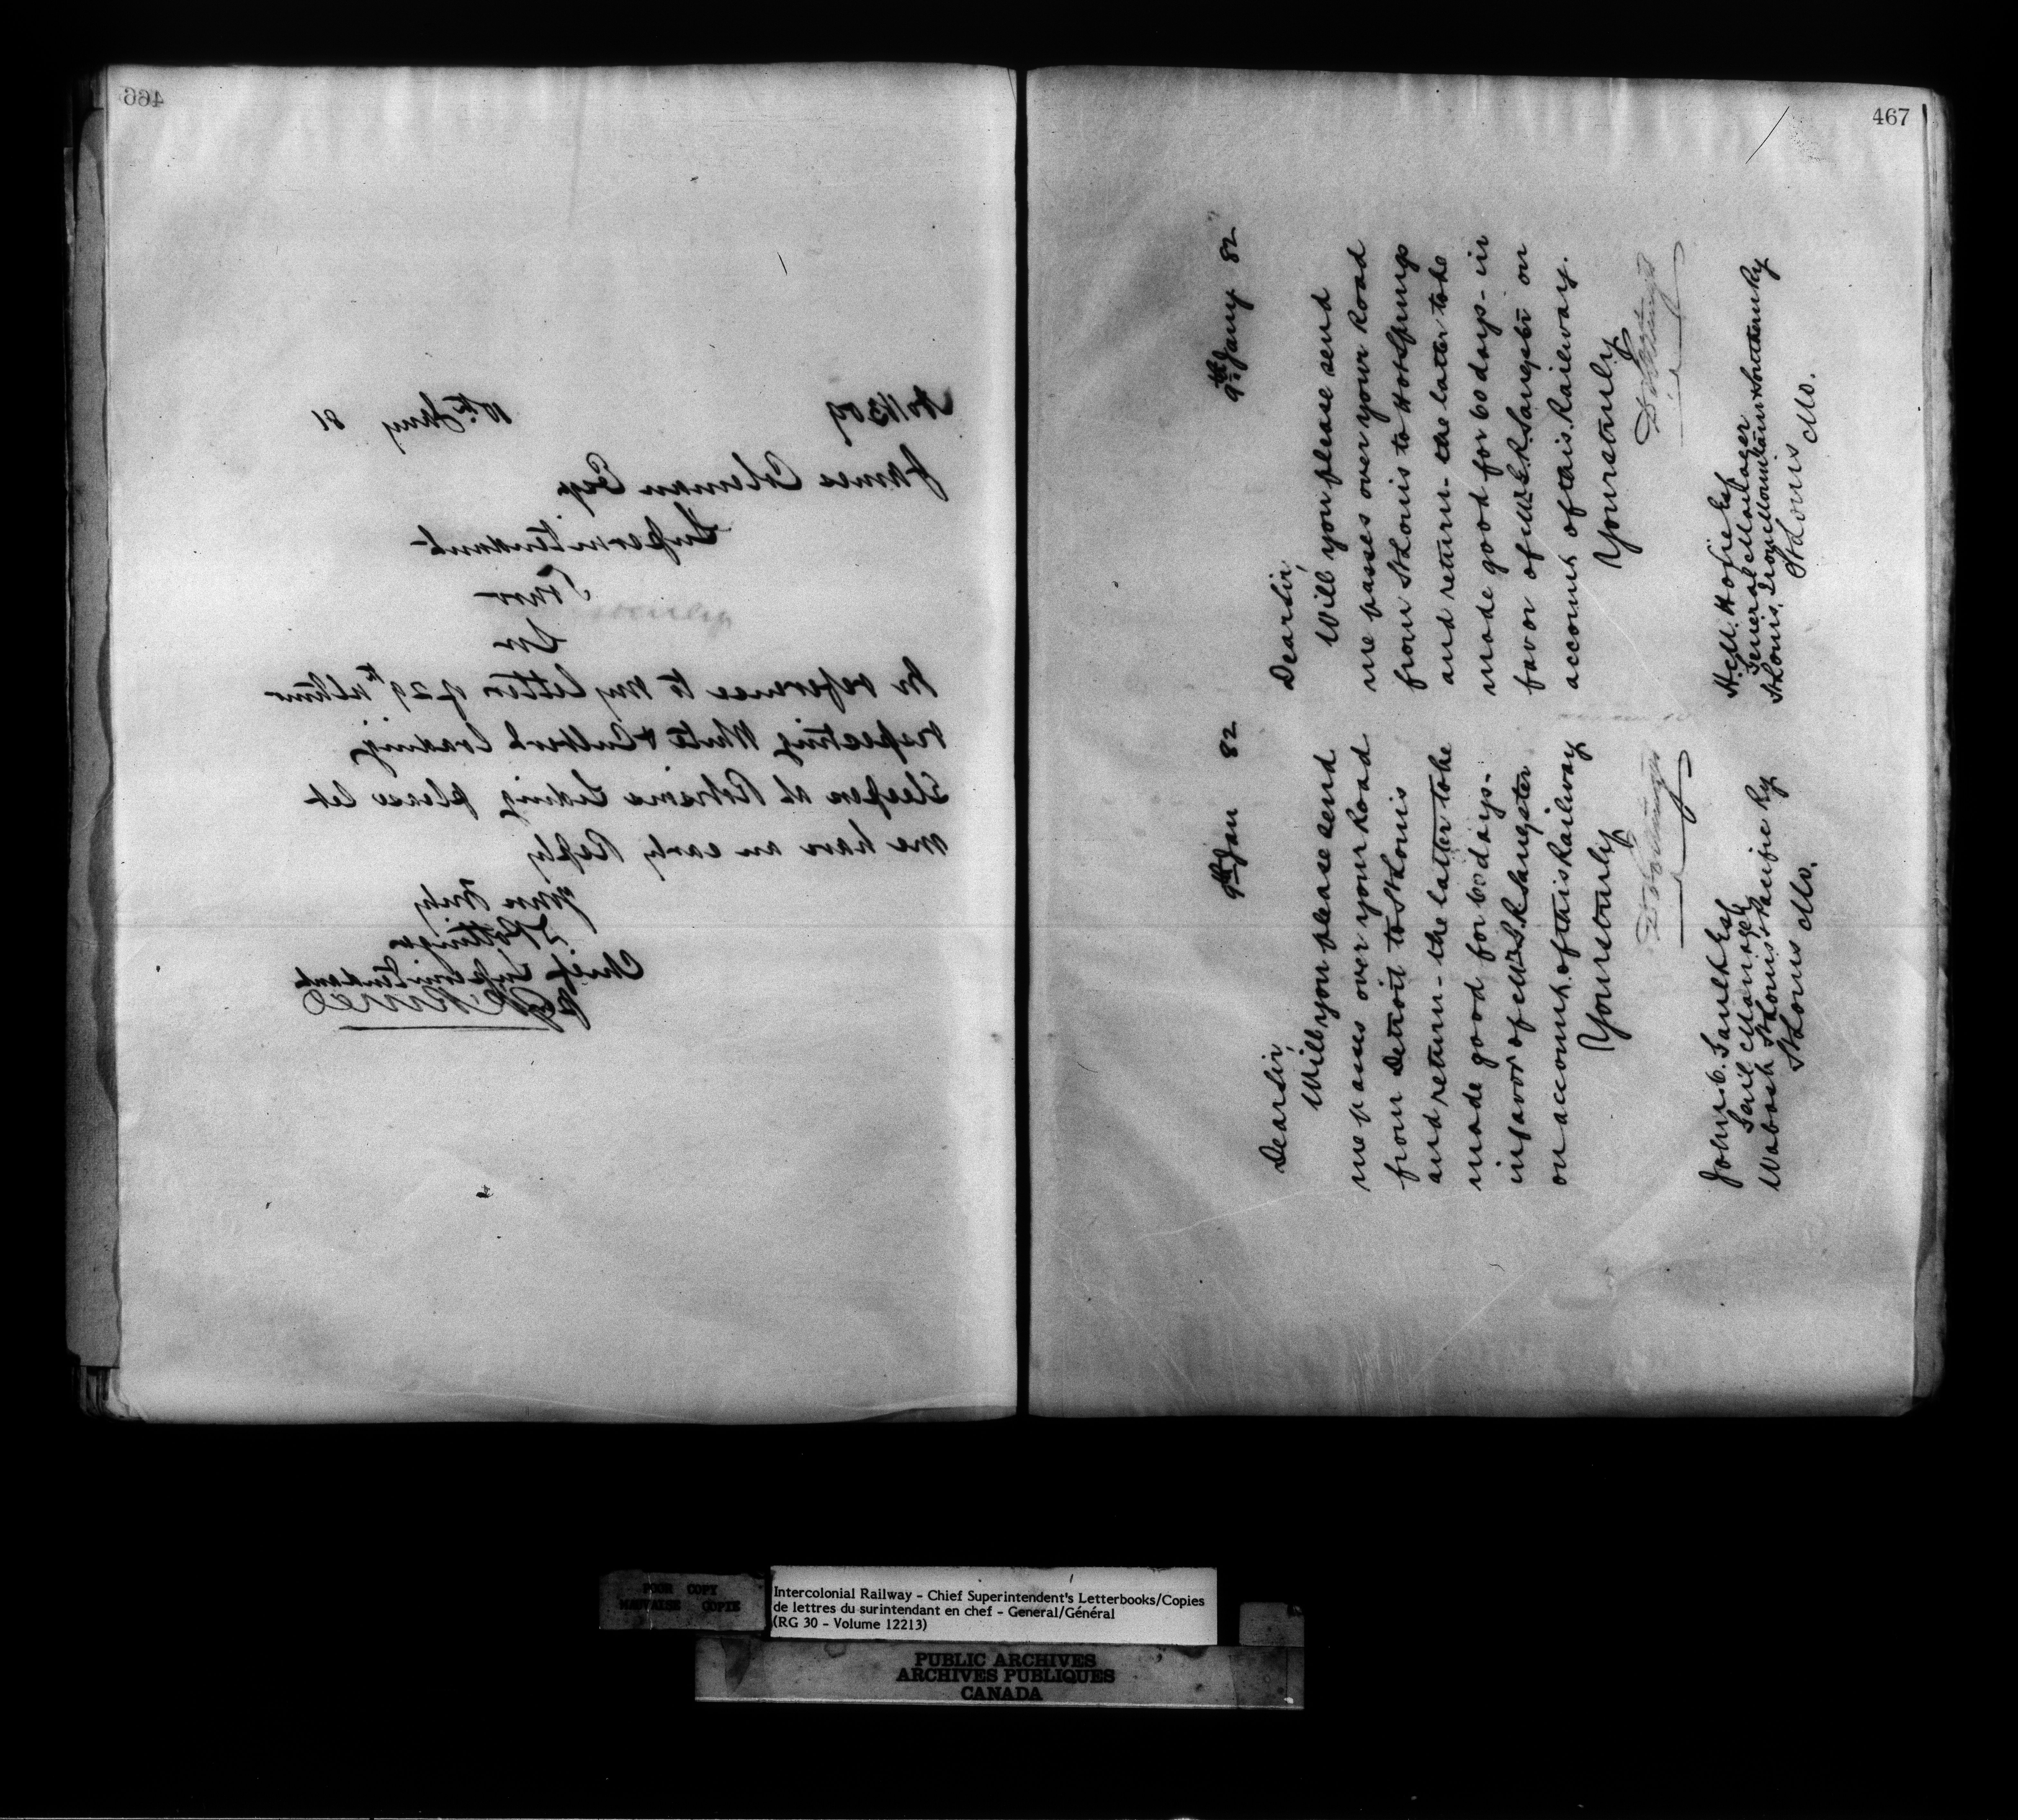 466
No 11309 10th Jany 81
James Coleman Esq
Superintendent
Truro
Sir
In reference to my letter of 29th ultimo
respecting White & Culvert loading
Sleepers at Robisons Siding please let
me have an early Reply
Yours truly
D Pottinger
Chief Superintendent
467
9th Jan 82
Dear Sir,
Will you please send
me passes over your Road
from Detroit to St Louis
and return - the latter to be
made good for 60 days -
in favor of Mr E R Sangster
on account of this Railway
Yours truly
D Pottinger
John C. Gault Esq
Genl Manager
Wabash St Louis & Pacific Ry
St Louis Mo.
9th Jany 82
Dear Sir,
Will you please send
me passes over your Road
from St Louis to Hot Springs
and return - the latter to be
made good for 60 days - in
favor of Mr E R Sangster on
account of this Railway.
Yours truly
D Pottinger
H. M. Hoxie Esq
General Manager
St Louis, Iron Mountain & Southern Ry
St Louis Mo.
POOR COPY
MAUVAISE COPIE
Intercolonial Railway - Chief Superintendent's Letterbooks/Copies
de lettres du surintendant en chef - General/Général
(RG 30 - Volume 12213)
PUBLIC ARCHIVES
ARCHIVES PUBLIQUES
CANADA